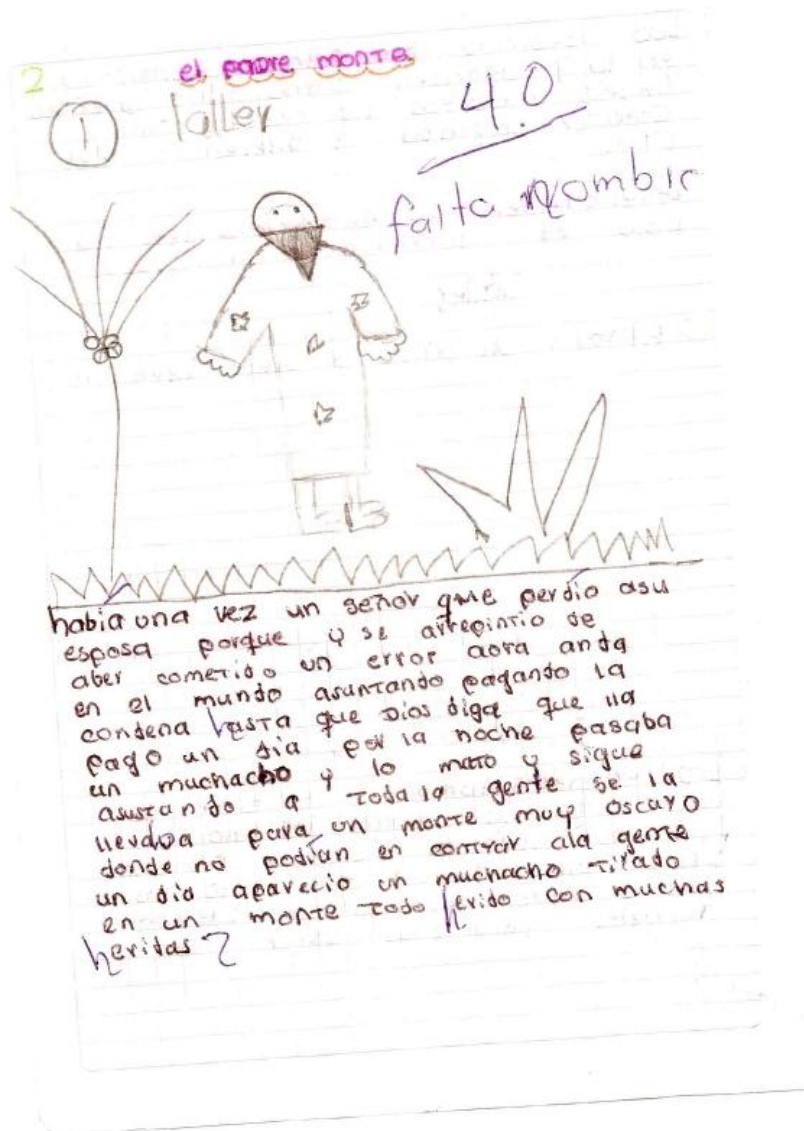 2
el padre monte
① Taller
4.0
falta nombre
habia una vez un señor que perdío asu
esposa porque y se arrepintio de
aber cometido un error aora anda
en el mundo asuntando pagando la
condena hasta que Dios diga que lla
pago un dia por la noche pasaba
un muchacho y lo mato y sigue
asustando a toda la gente se la
llevdba para un monte muy oscuro
donde no podían en contrar ala gente
un dia aparecio un muchacho tirado
en un monte todo herido con muchas
heridas